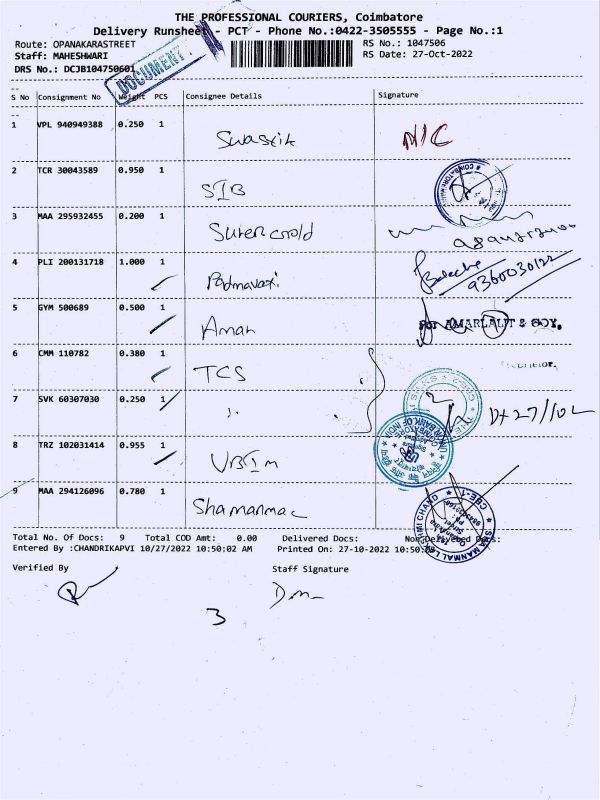 THE PROFESSIONAL COURIERS, Coimbatore
Delivery Runsheet - PCT - Phone No.:0422-3505555 - Page No.:1
Route: OPANAKARASTREET RS No.: 1047506
Staff: MAHESHWARI RS Date: 27-Oct-2022
DRS No.: DCJB104750601
DOCUMENT
S No Consignment No Weight PCS Consignee Details Signature
1 VPL 940949388 0.250 1 Swastik NIC
2 TCR 30043589 0.950 1 SIB
3 MAA 295932455 0.200 1
4 PLI 200131718 1.000 1 Padmavati 9360030122
5 GYM 500689 0.500 1 Aman For AMARLALIT & BOY,
6 CMM 110782 0.380 1 TCS
7 SVK 60307030 0.250 1 " 27/10
8 TRZ 102031414 0.955 1
UNION BANK OF INDIA
9 MAA 294126096 0.780 1
CBE-1
Total No. Of Docs: 9 Total COD Amt: 0.00 Delivered Docs: Non Delivered Docs:
Entered By :CHANDRIKAPVI 10/27/2022 10:50:02 AM Printed On: 27-10-2022 10:50:03
Verified By Staff Signature
3